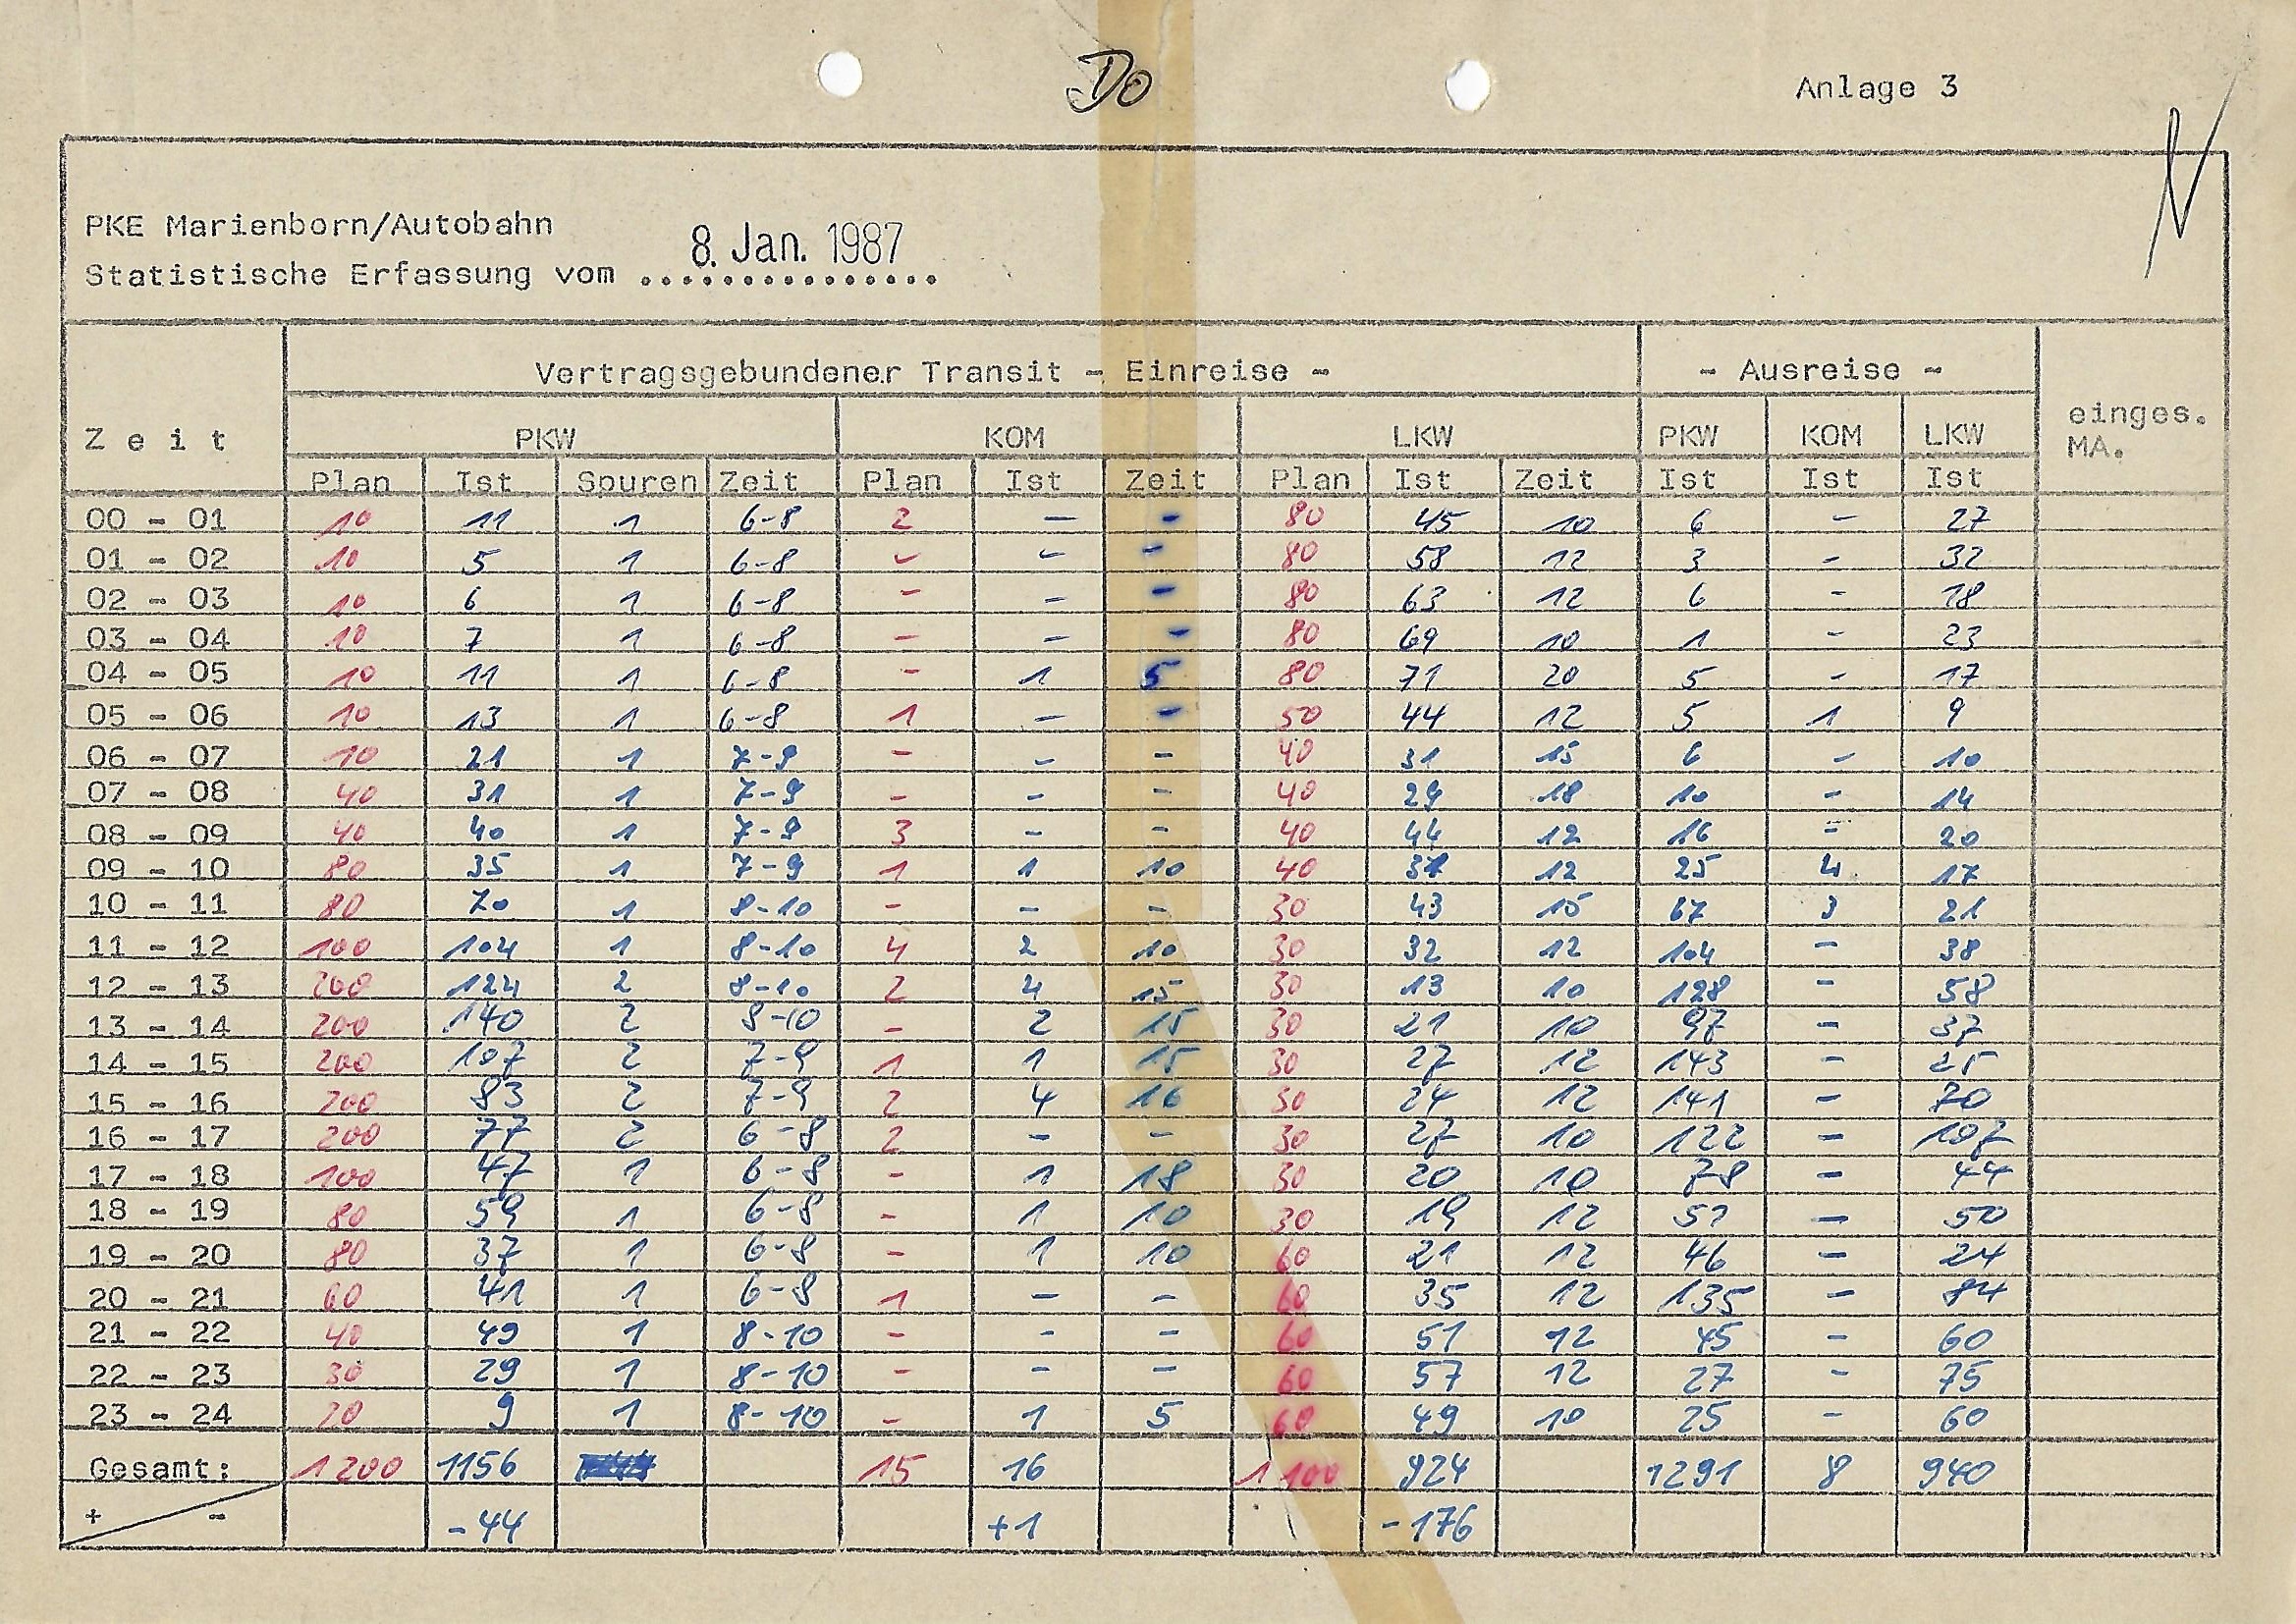 Do
Anlage 3
PKE Marienborn/Autobahn
Statistische Erfassung vom 8. Jan. 1987
Vertragsgebundener Transit - Einreise - - Ausreise -
Zeit PKW KOM LKW PKW KOM LKW einges. MA.
Plan Ist Spuren Zeit Plan Ist Zeit Plan Ist Zeit Ist Ist Ist
00 - 01 10 11 1 6-8 2 - - 80 45 10 6 - 27
01 - 02 10 5 1 6-8 - - - 80 58 12 3 - 32
02 - 03 10 6 1 6-8 - - - 80 63 12 6 - 18
03 - 04 10 7 1 6-8 - - - 80 69 10 1 - 23
04 - 05 10 11 1 6-8 - 1 5 80 71 20 5 - 17
05 - 06 10 13 1 6-8 1 - - 50 44 12 5 1 9
06 - 07 10 21 1 7-9 - - - 40 31 15 6 - 10
07 - 08 40 31 1 7-9 - - - 40 29 18 10 - 14
08 - 09 40 40 1 7-9 3 - - 40 44 12 16 - 20
09 - 10 80 35 1 7-9 1 1 10 40 31 12 25 4 17
10 - 11 80 70 1 8-10 - - - 30 43 15 67 3 21
11 - 12 100 104 1 8-10 4 2 10 30 32 12 104 - 38
12 - 13 200 124 2 8-10 2 4 15 30 13 10 128 - 58
13 - 14 200 140 2 8-10 - 2 15 30 21 10 97 - 37
14 - 15 200 107 2 7-9 1 1 15 30 27 12 143 - 25
15 - 16 200 83 2 7-9 2 4 16 30 24 12 141 - 70
16 - 17 200 77 2 6-8 2 - - 30 27 10 122 - 107
17 - 18 100 47 1 6-8 - 1 18 30 20 10 78 - 44
18 - 19 80 59 1 6-8 - 1 10 30 19 12 51 - 50
19 - 20 80 37 1 6-8 - 1 10 60 21 12 46 - 24
20 - 21 60 41 1 6-8 1 - - 60 35 12 135 - 84
21 - 22 40 49 1 8-10 - - - 60 51 12 45 - 60
22 - 23 30 29 1 8-10 - - - 60 57 12 27 - 75
23 - 24 20 9 1 8-10 - 1 5 60 49 10 25 - 60
Gesamt: 1200 1156 15 16 1100 924 1291 8 940
+ - -44 +1 -176